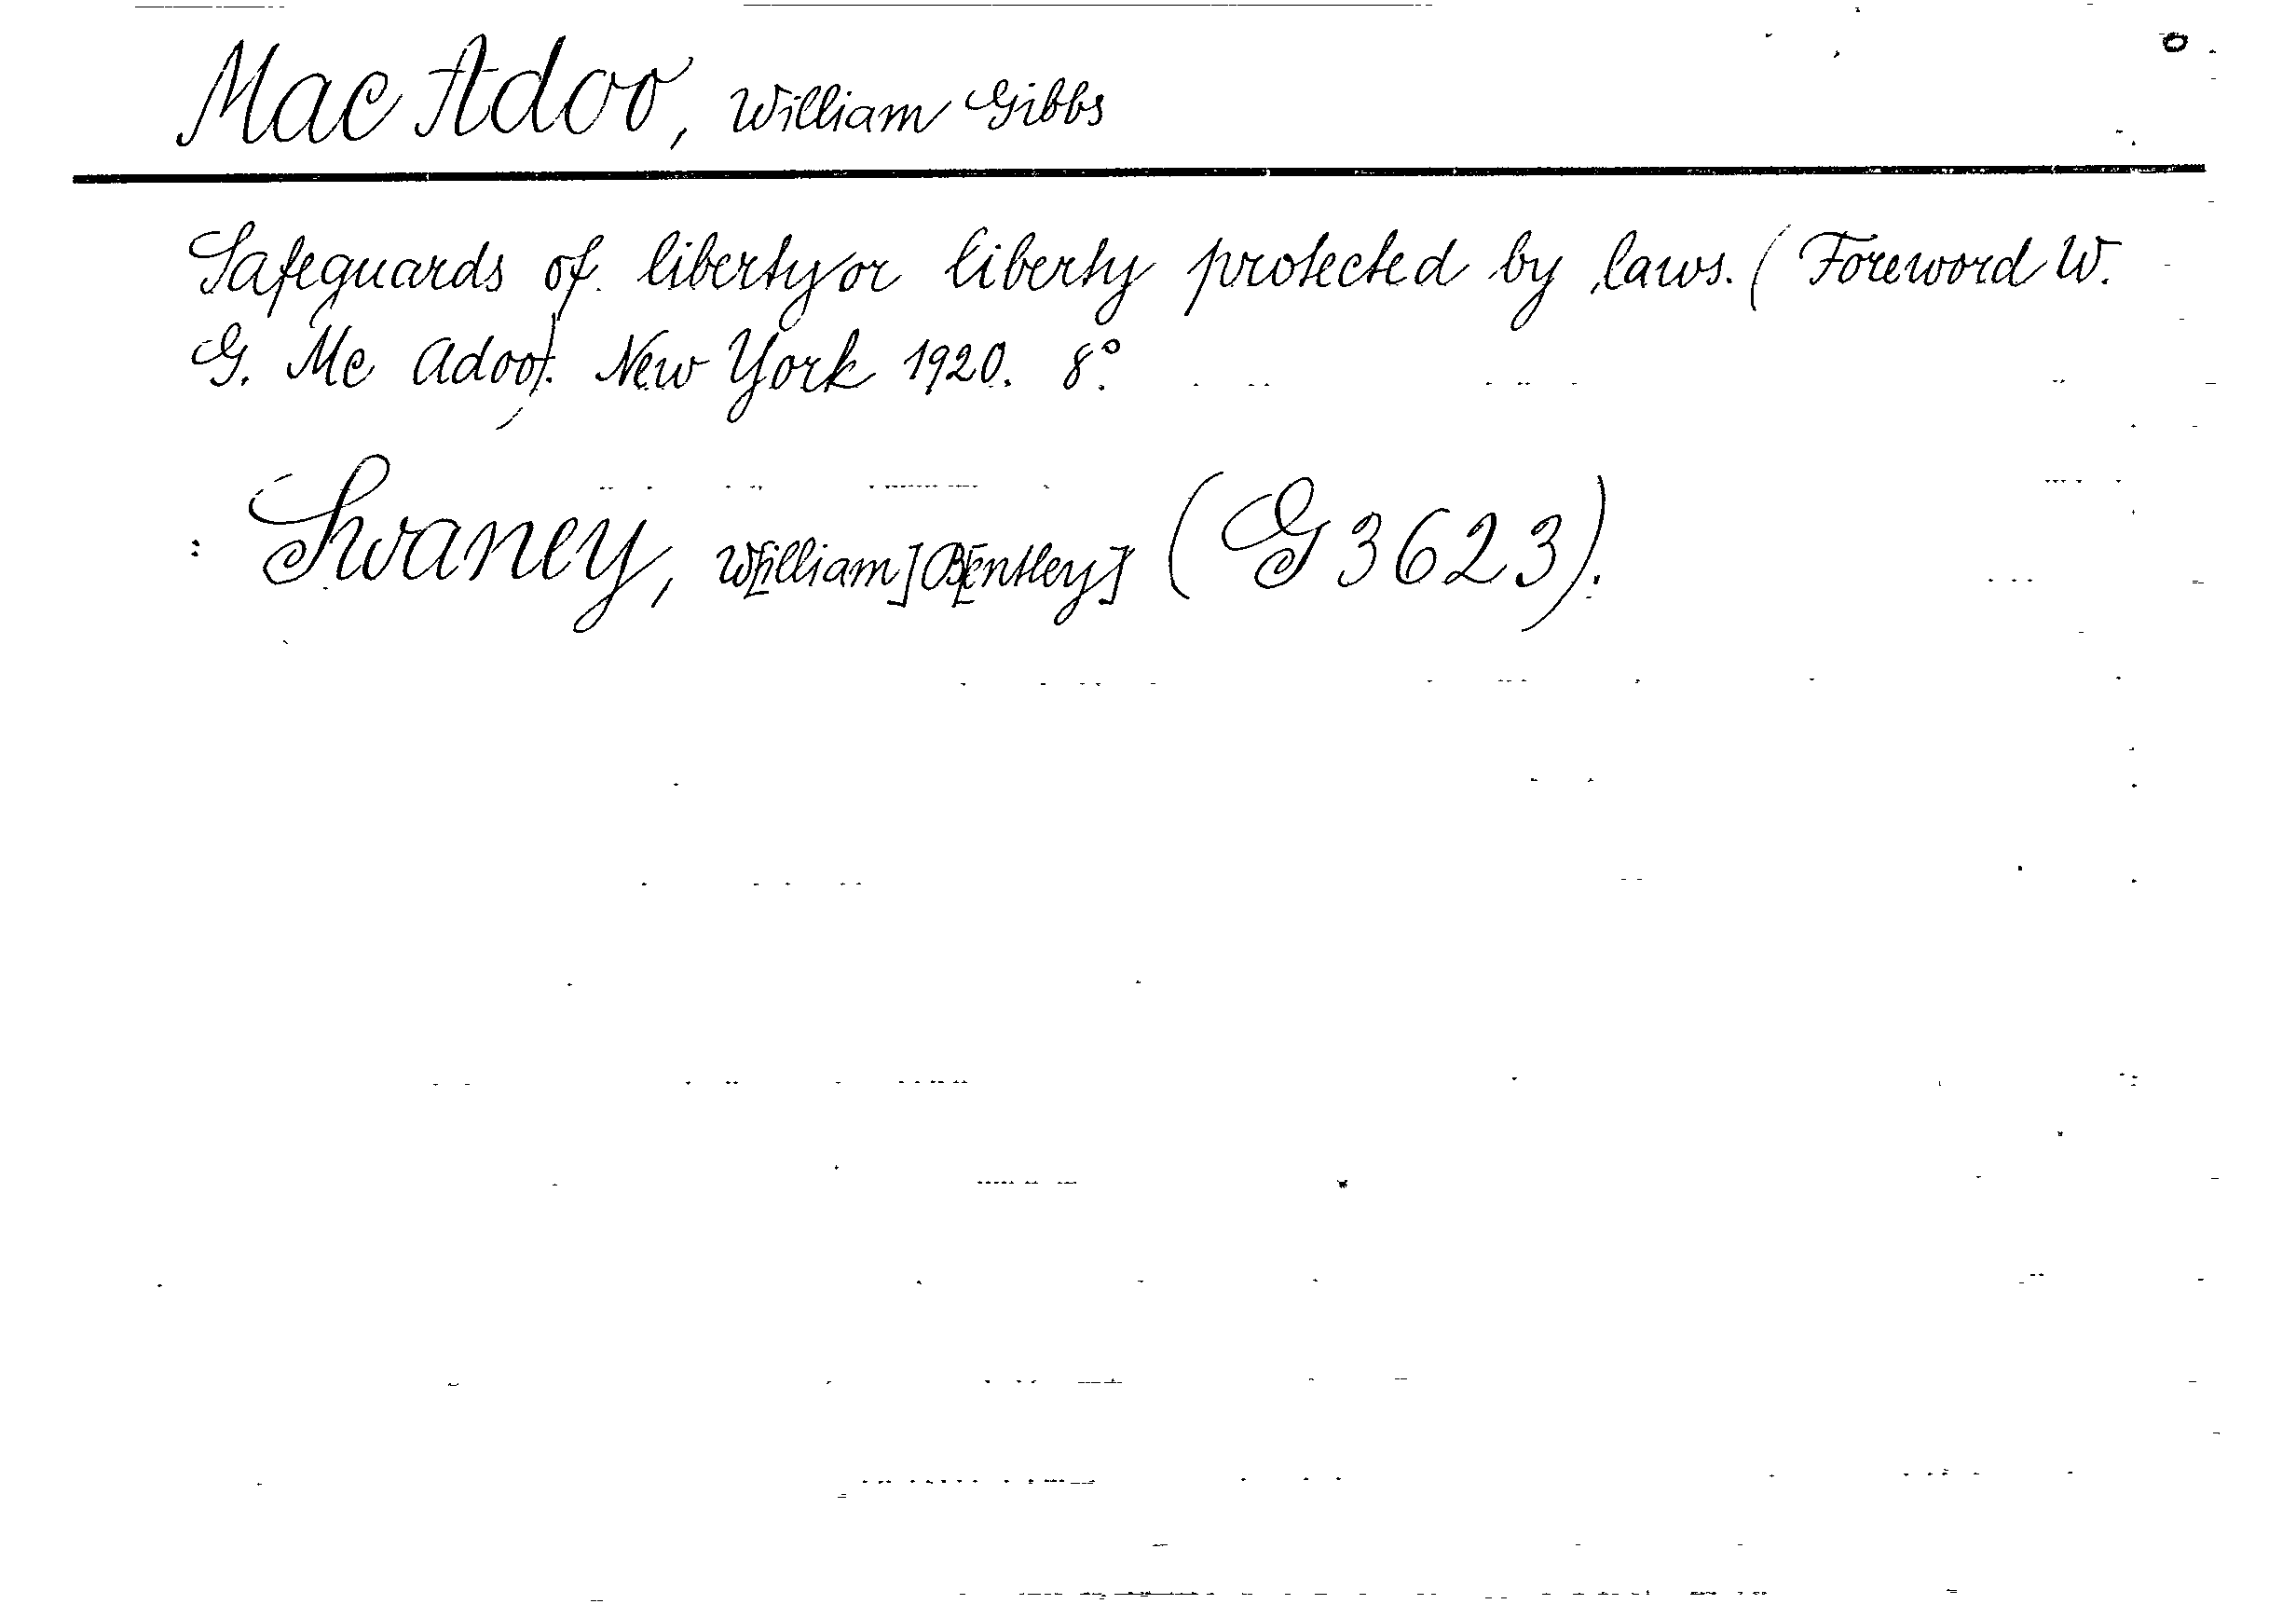 Mac Adoo, William Gibbs
Safeguards of liberty or liberty protected by laws. (Foreword W.
G. Mc Adoo). New York 1920. 8°.
: Swaney, W[illiam] B[entley] (G 3623).